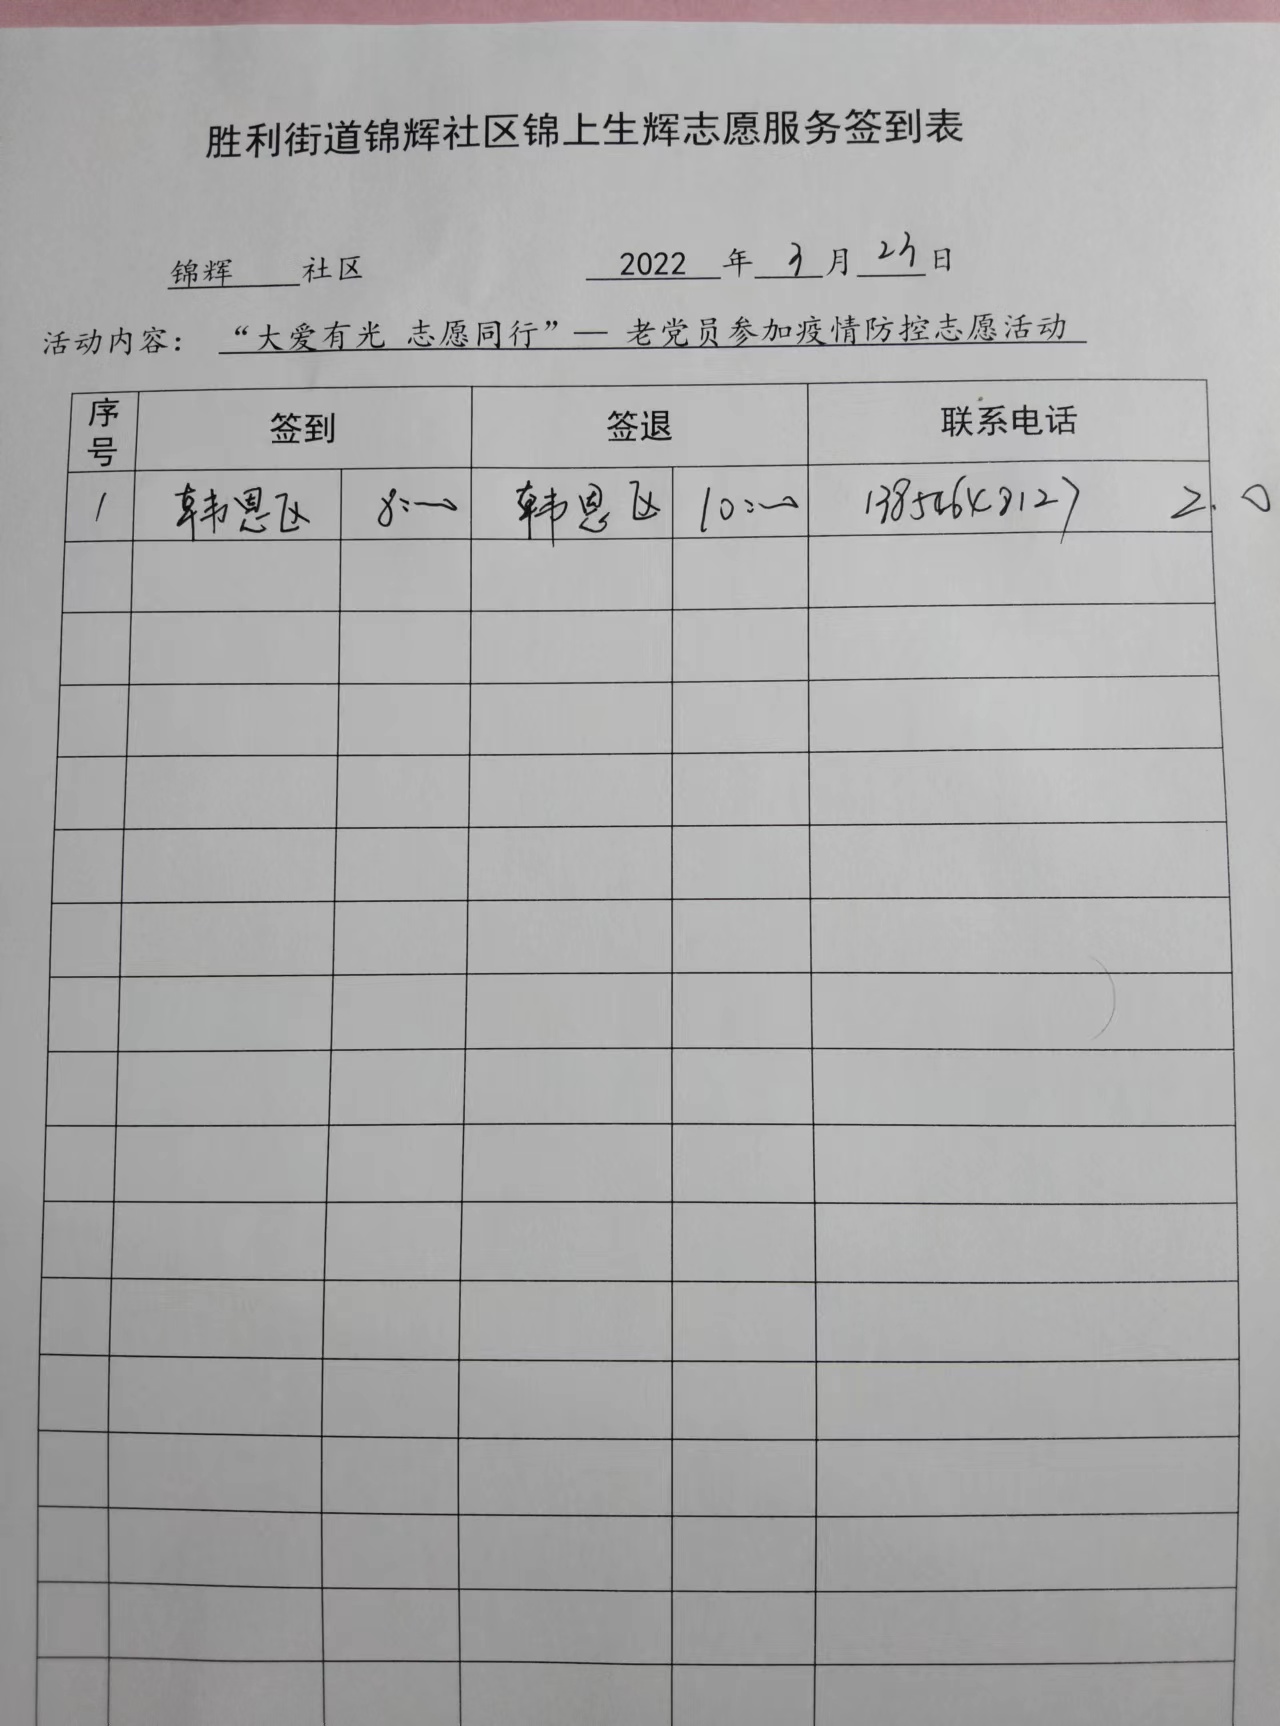 胜利街道锦辉社区锦上生辉志愿服务签到表
锦辉 社区 2022 年 3 月 23 日
活动内容： “大爱有光 志愿同行”— 老党员参加疫情防控志愿活动
序号 签到 签退 联系电话
1 韩恩区 8:00 韩恩区 10:00 2.0